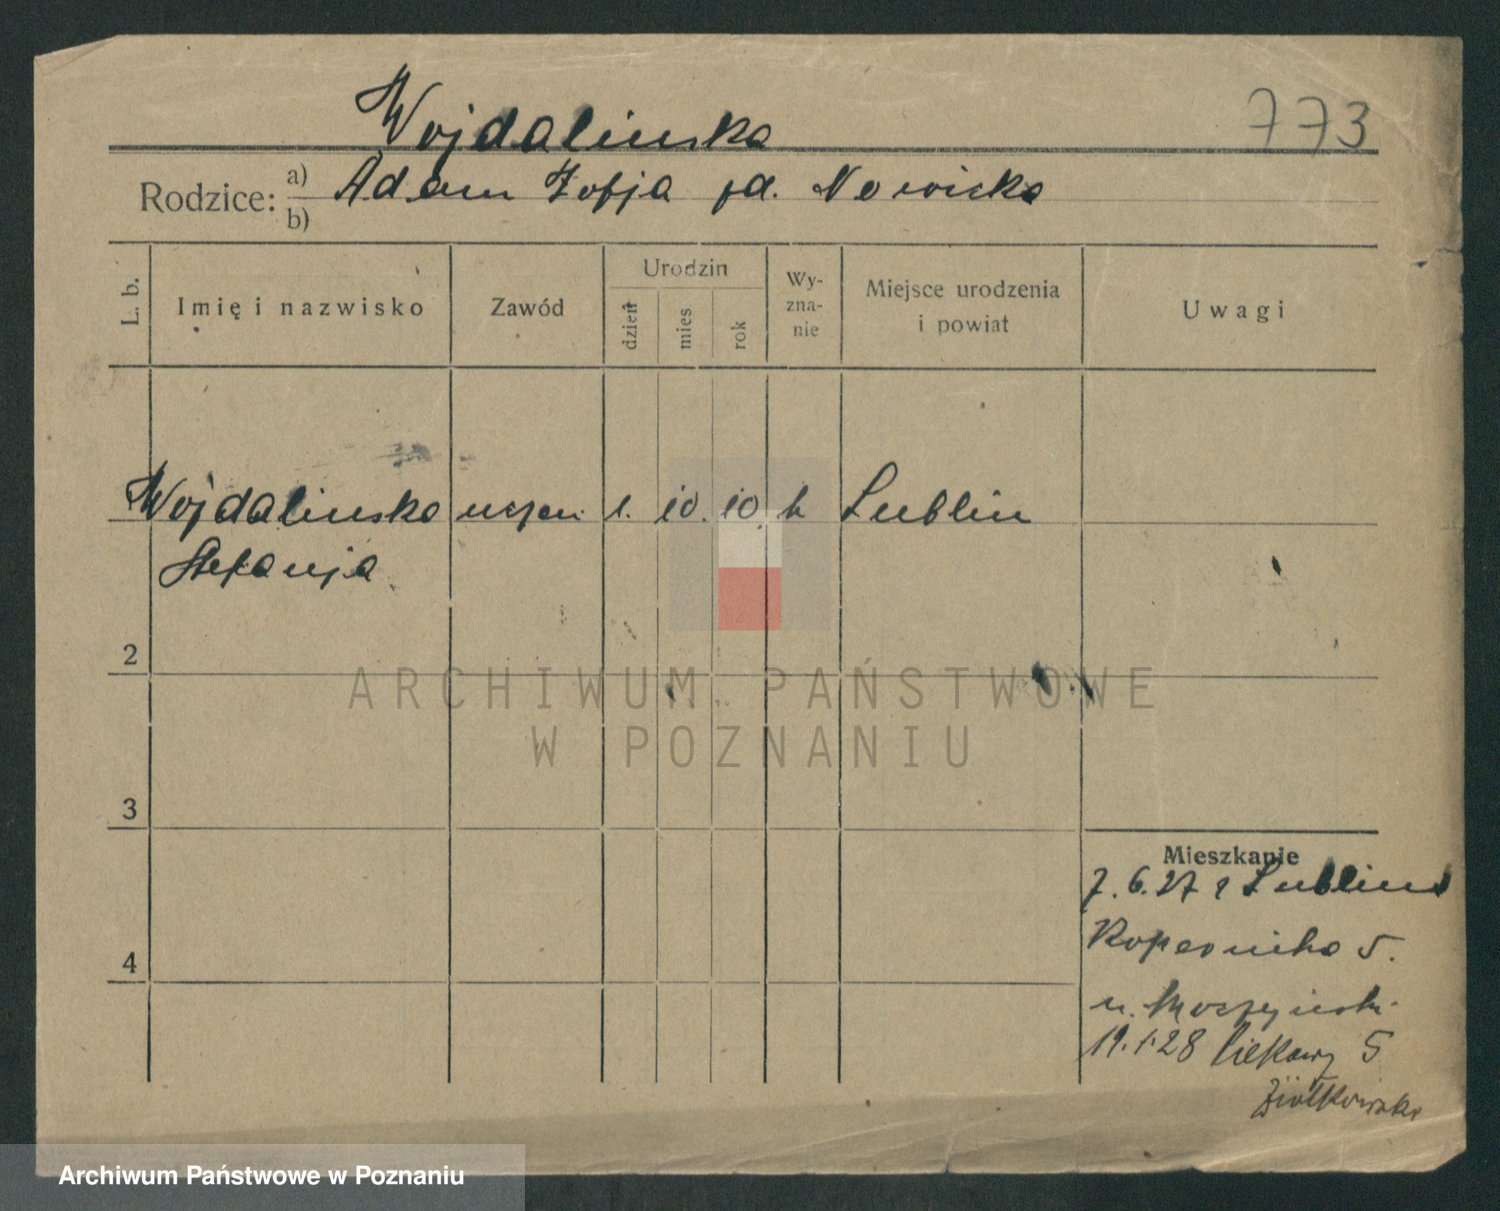 Wojdalinska
773
Rodzice: a) Adam Zofja yd. Nowicka
b)
L. b.
Imię i nazwisko
Zawód
Urodzin
dzień
mies
rok
Wy-
zna-
nie
Miejsce urodzenia
i powiat
Uwagi
Wojdalinska uczen. 1. 10. 10. k Lublin
Stefanja
2
ARCHIWUM PAŃSTWOWE
W POZNANIU
3
Mieszkanie
7.6.27 z Lublina
4
Kopernika 5.
u.
19.1.28 5
Ziółkowska
Archiwum Państwowe w Poznaniu